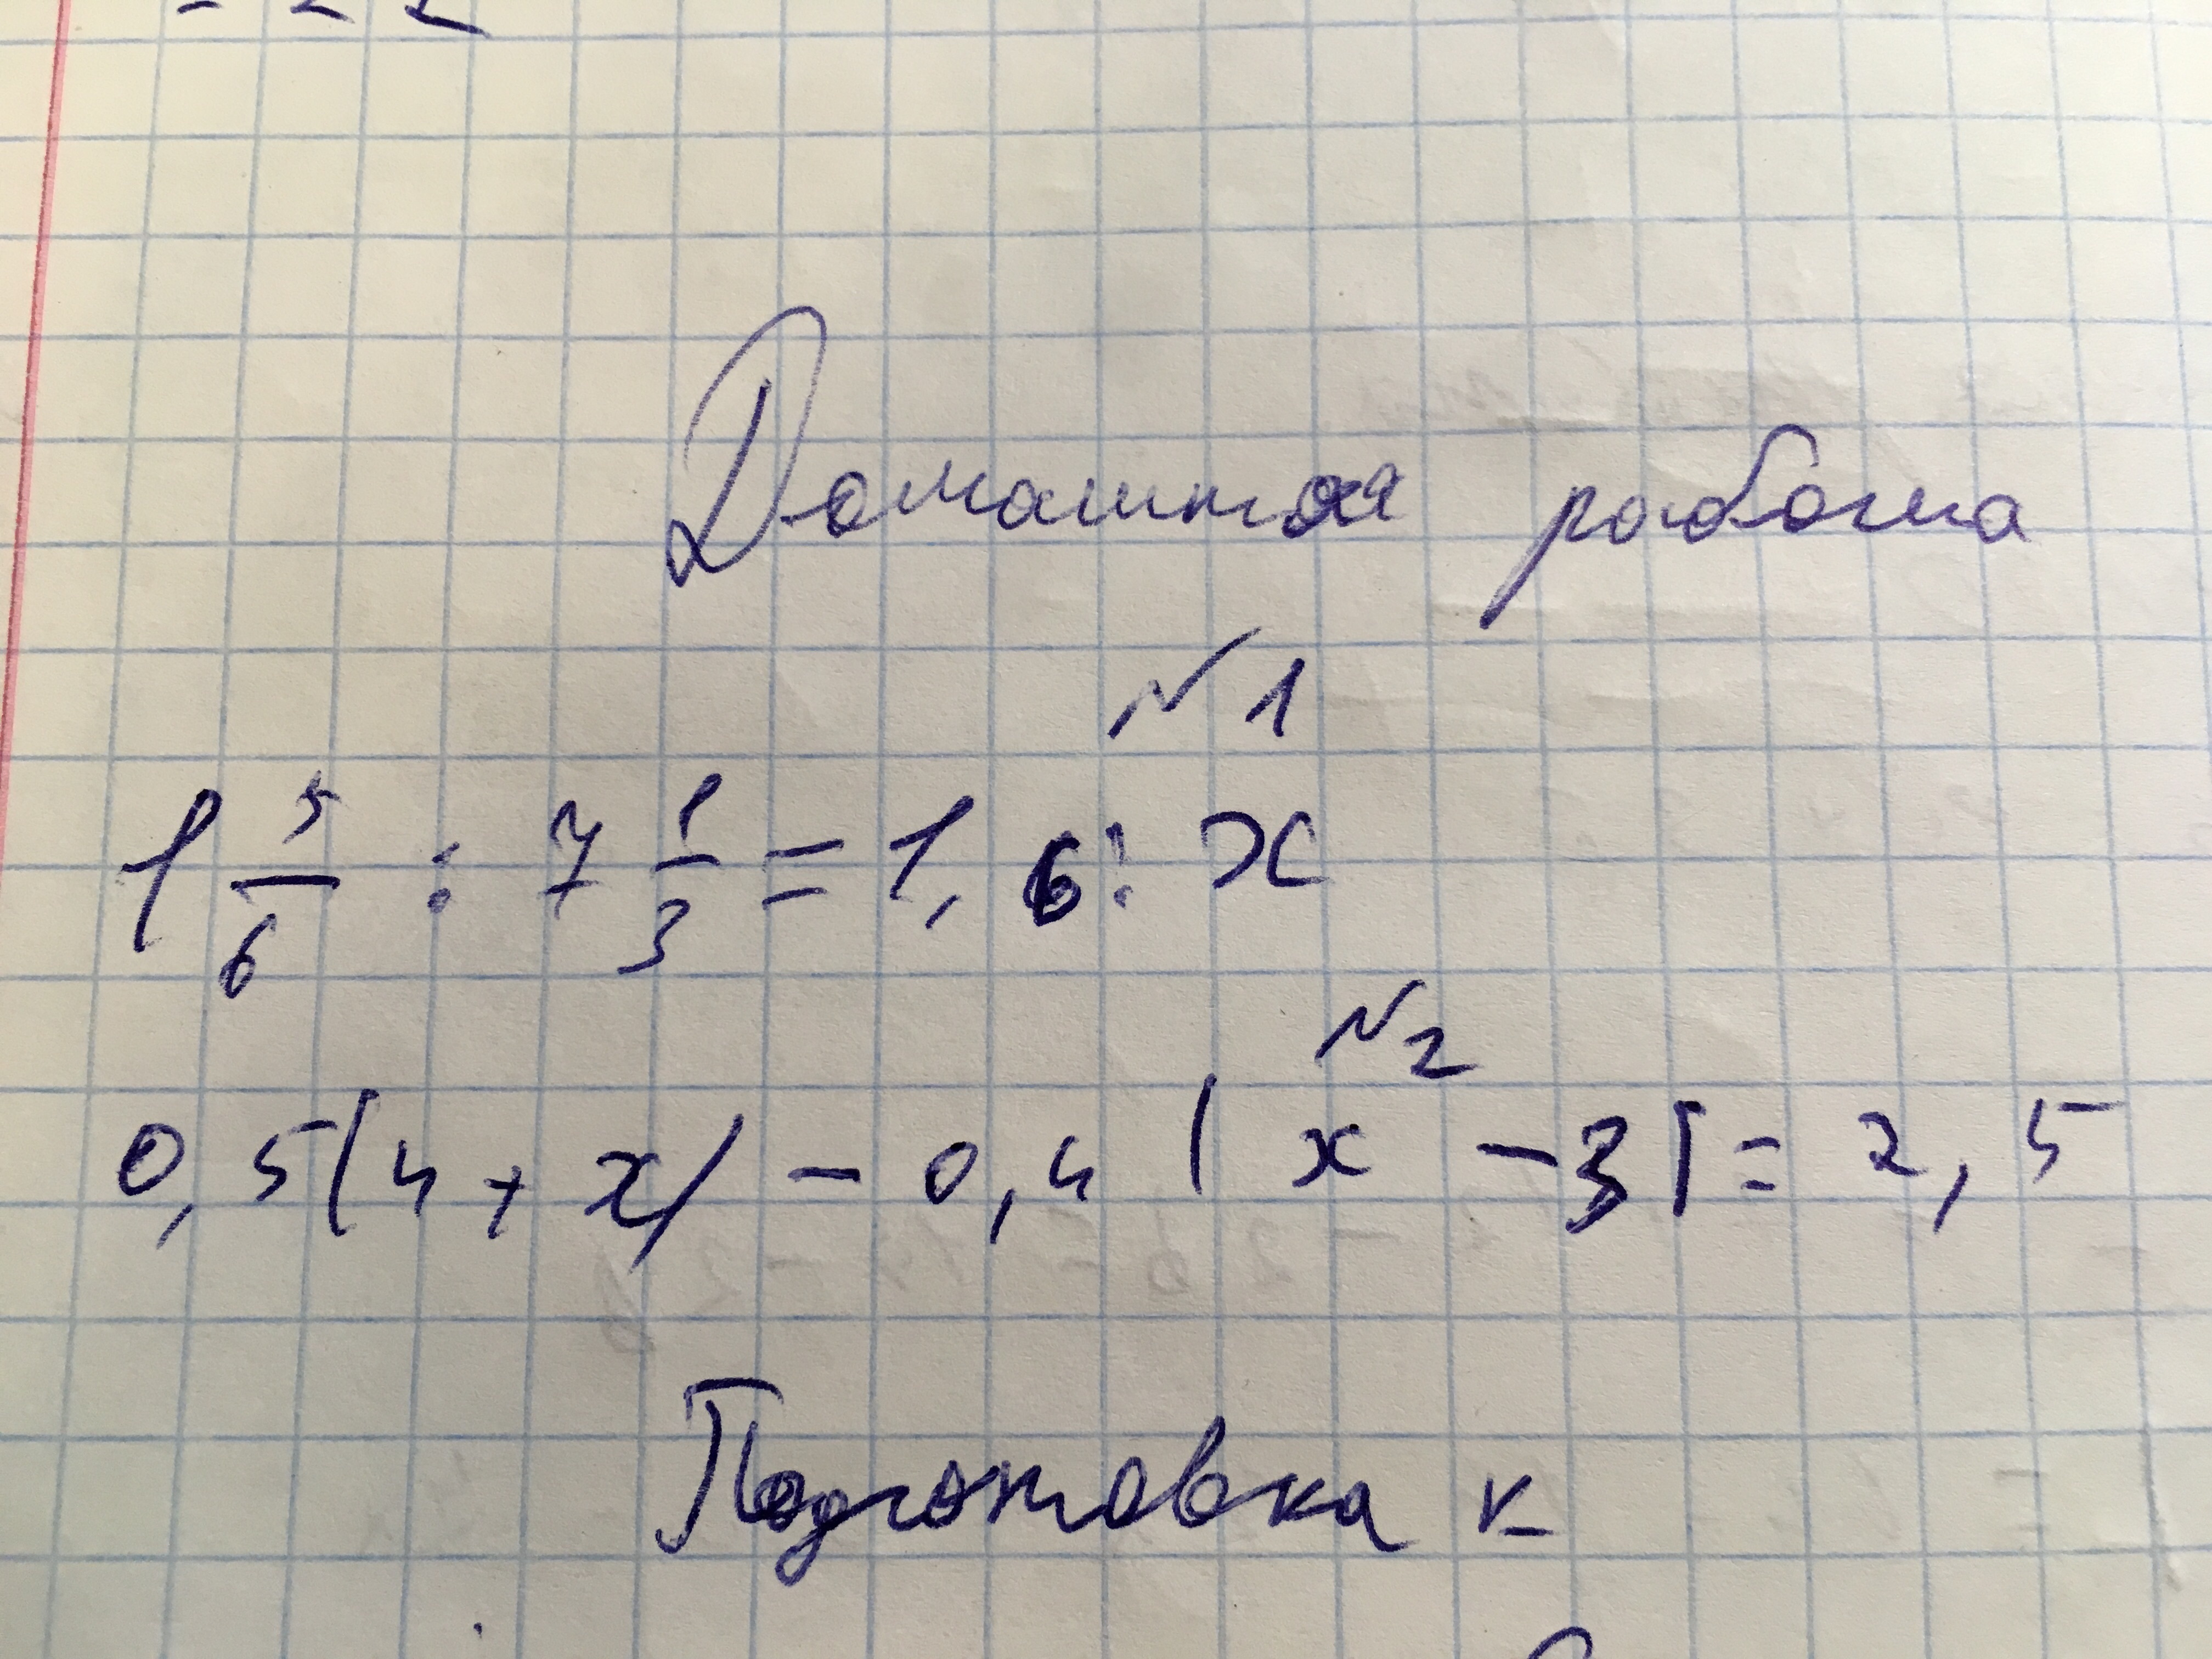 Домашняя работа
№1
1 5/6 : 7 1/3 = 1,6 : x
№2
0,5(4+x) - 0,4(x-3) = 2,5
Подготовка к